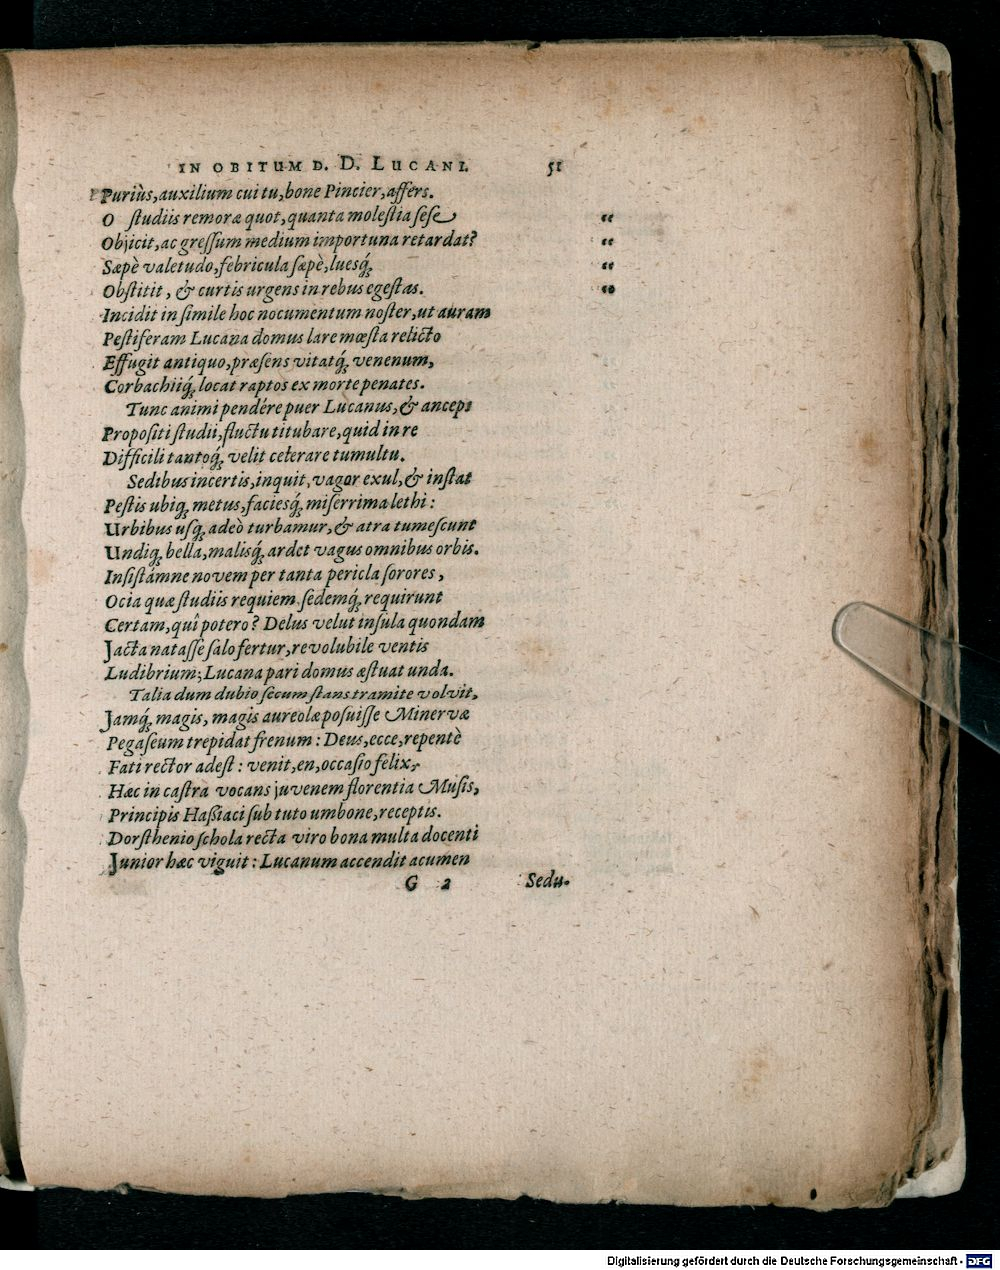 IN OBITUM D. D. LUCANI. 51
Puriùs, auxilium cui tu, bone Pincier, affers.
O studiis remoræ quot, quanta molestia sese “
Objicit, ac gressum medium importuna retardat? “
Sæpè valetudo, febricula sæpè, luesq́; “
Obstitit, & curtis urgens in rebus egestas. “
Incidit in simile hoc nocumentum noster, ut auram
Pestiferam Lucana domus lare mæsta relicto
Effugit antiquo, præsens vitatq́; venenum,
Corbachiiq́; locat raptos ex morte penates.
Tunc animi pendére puer Lucanus, & anceps
Propositi studii, fluctu titubare, quid in re
Difficili tantoq́; velit celerare tumultu.
Sedibus incertis, inquit, vagor exul, & instat
Pestis ubiq; metus, faciesq́; miserrima lethi:
Urbibus usq; adeò turbamur, & atra tumescunt
Undiq; bella, malisq́; ardet vagus omnibus orbis.
Insistámne novem per tanta pericla sorores,
Ocia quæ studiis requiem sedemq́; requirunt
Certam, quî potero? Delus velut insula quondam
Jacta natasse salo fertur, revolubile ventis
Ludibrium; Lucana pari domus æstuat unda.
Talia dum dubio secum stans tramite volvit,
Jamq́; magis, magis aureolæ posuisse Minervæ
Pegaseum trepidat frenum: Deus, ecce, repentè
Fati rector adest: venit, en, occasio felix,
Hæc in castra vocans juvenem florentia Musis,
Principis Hassiaci sub tuto umbone, receptis.
Dorsthenio schola recta viro bona multa docenti
Junior hæc viguit: Lucanum accendit acumen
G 2 Sedu-
Digitalisierung gefördert durch die Deutsche Forschungsgemeinschaft - DFG